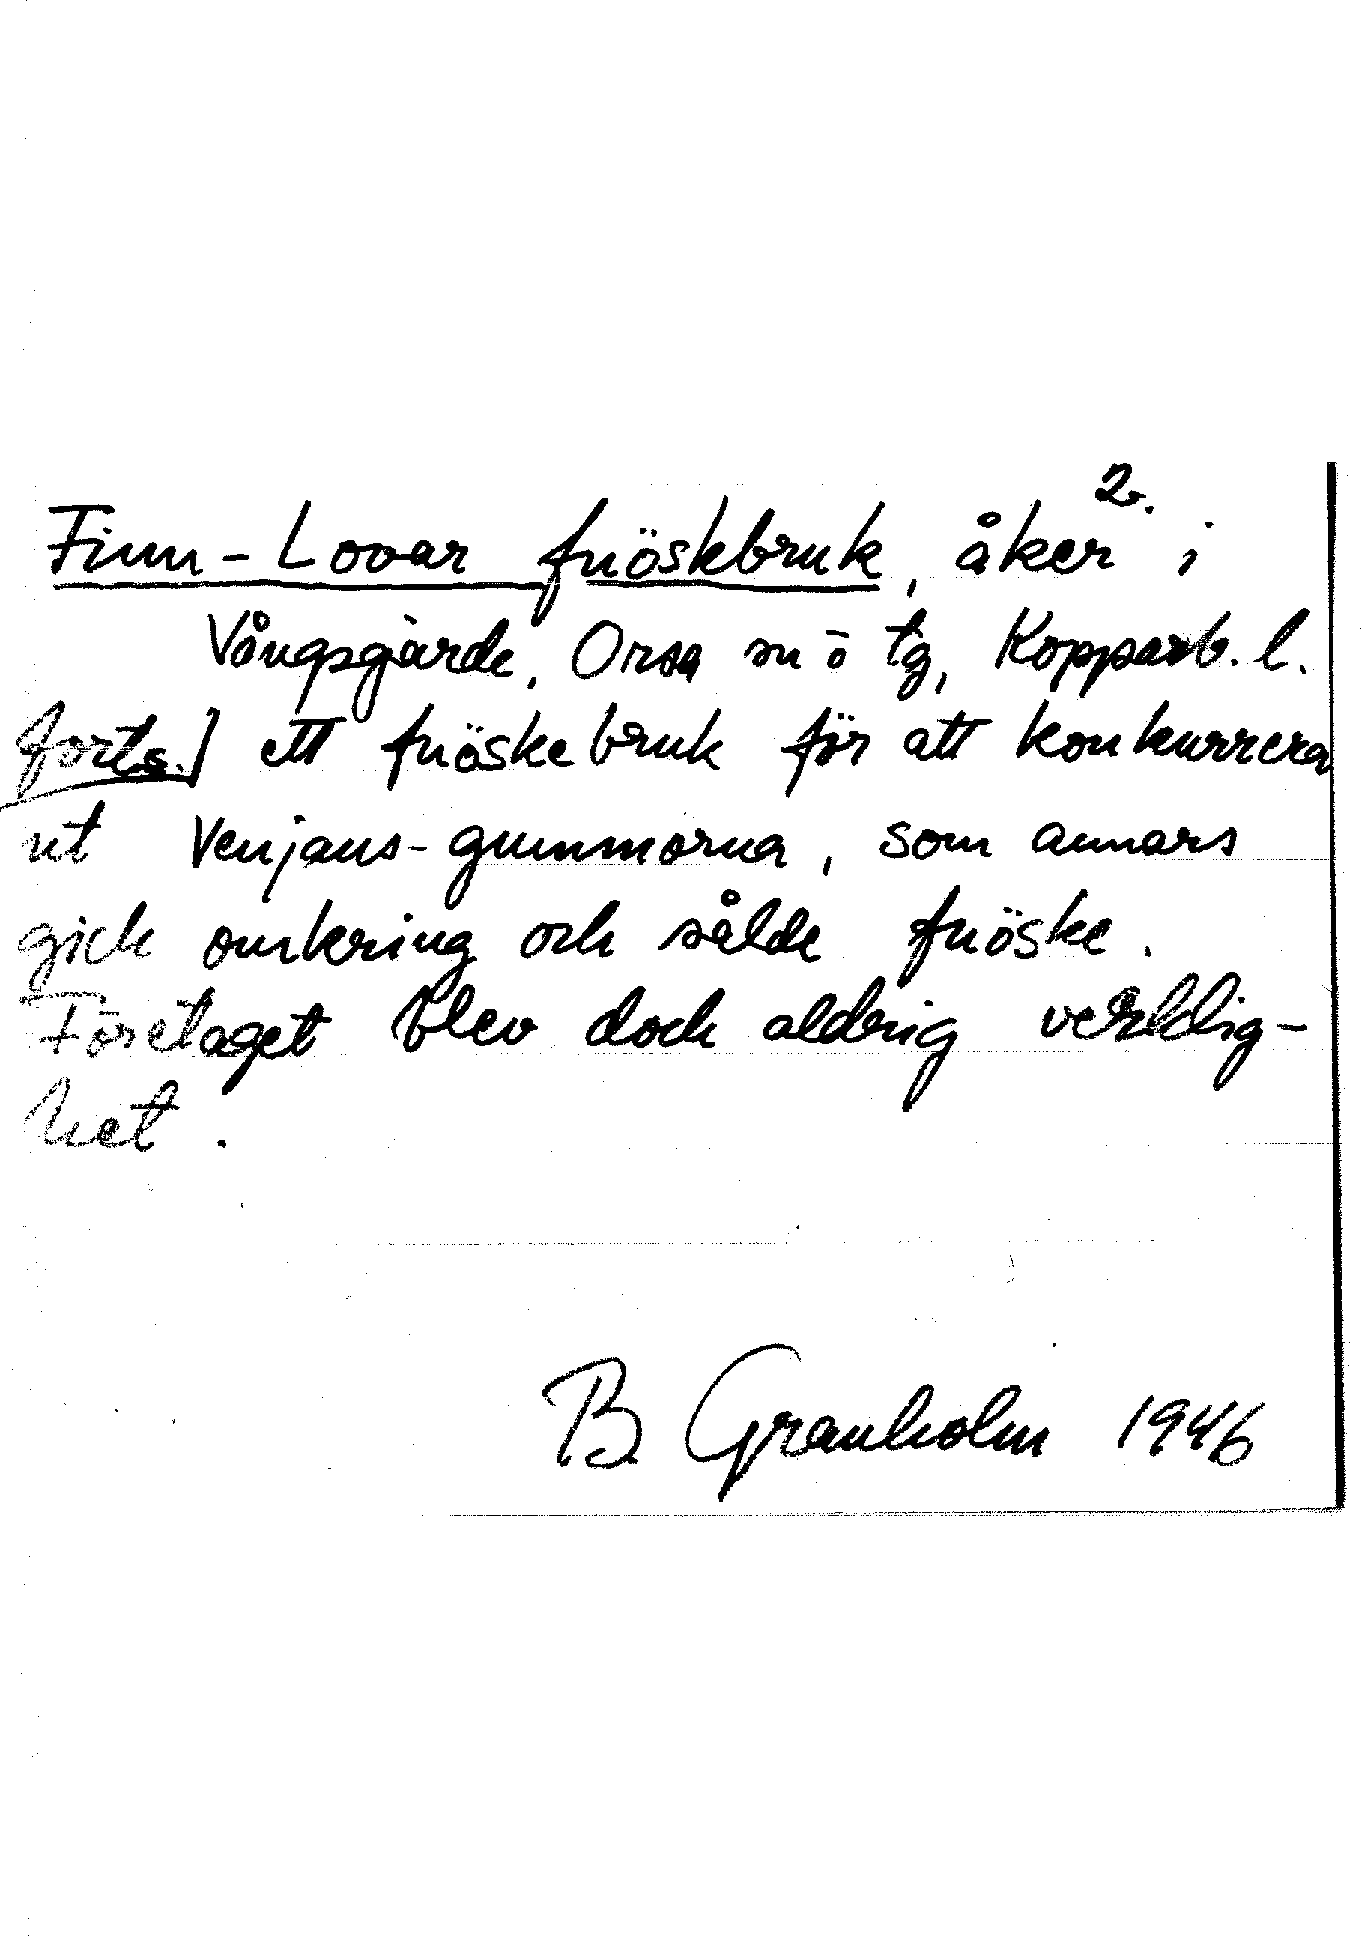 2.
Finn-Lovar fnöskbruk, åker i
Vångsgärde, Orsa sn o tg, Kopparb. l.
forts.] ett fnöskebruk för att konkurrera
ut Venjans-gummorna, som annars
gick omkring och sålde fnöske.
Företaget blev dock aldrig verklig-
het.
B Granholm 1946